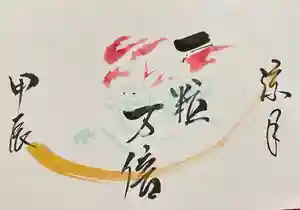 一粒
万倍
涼月
甲辰